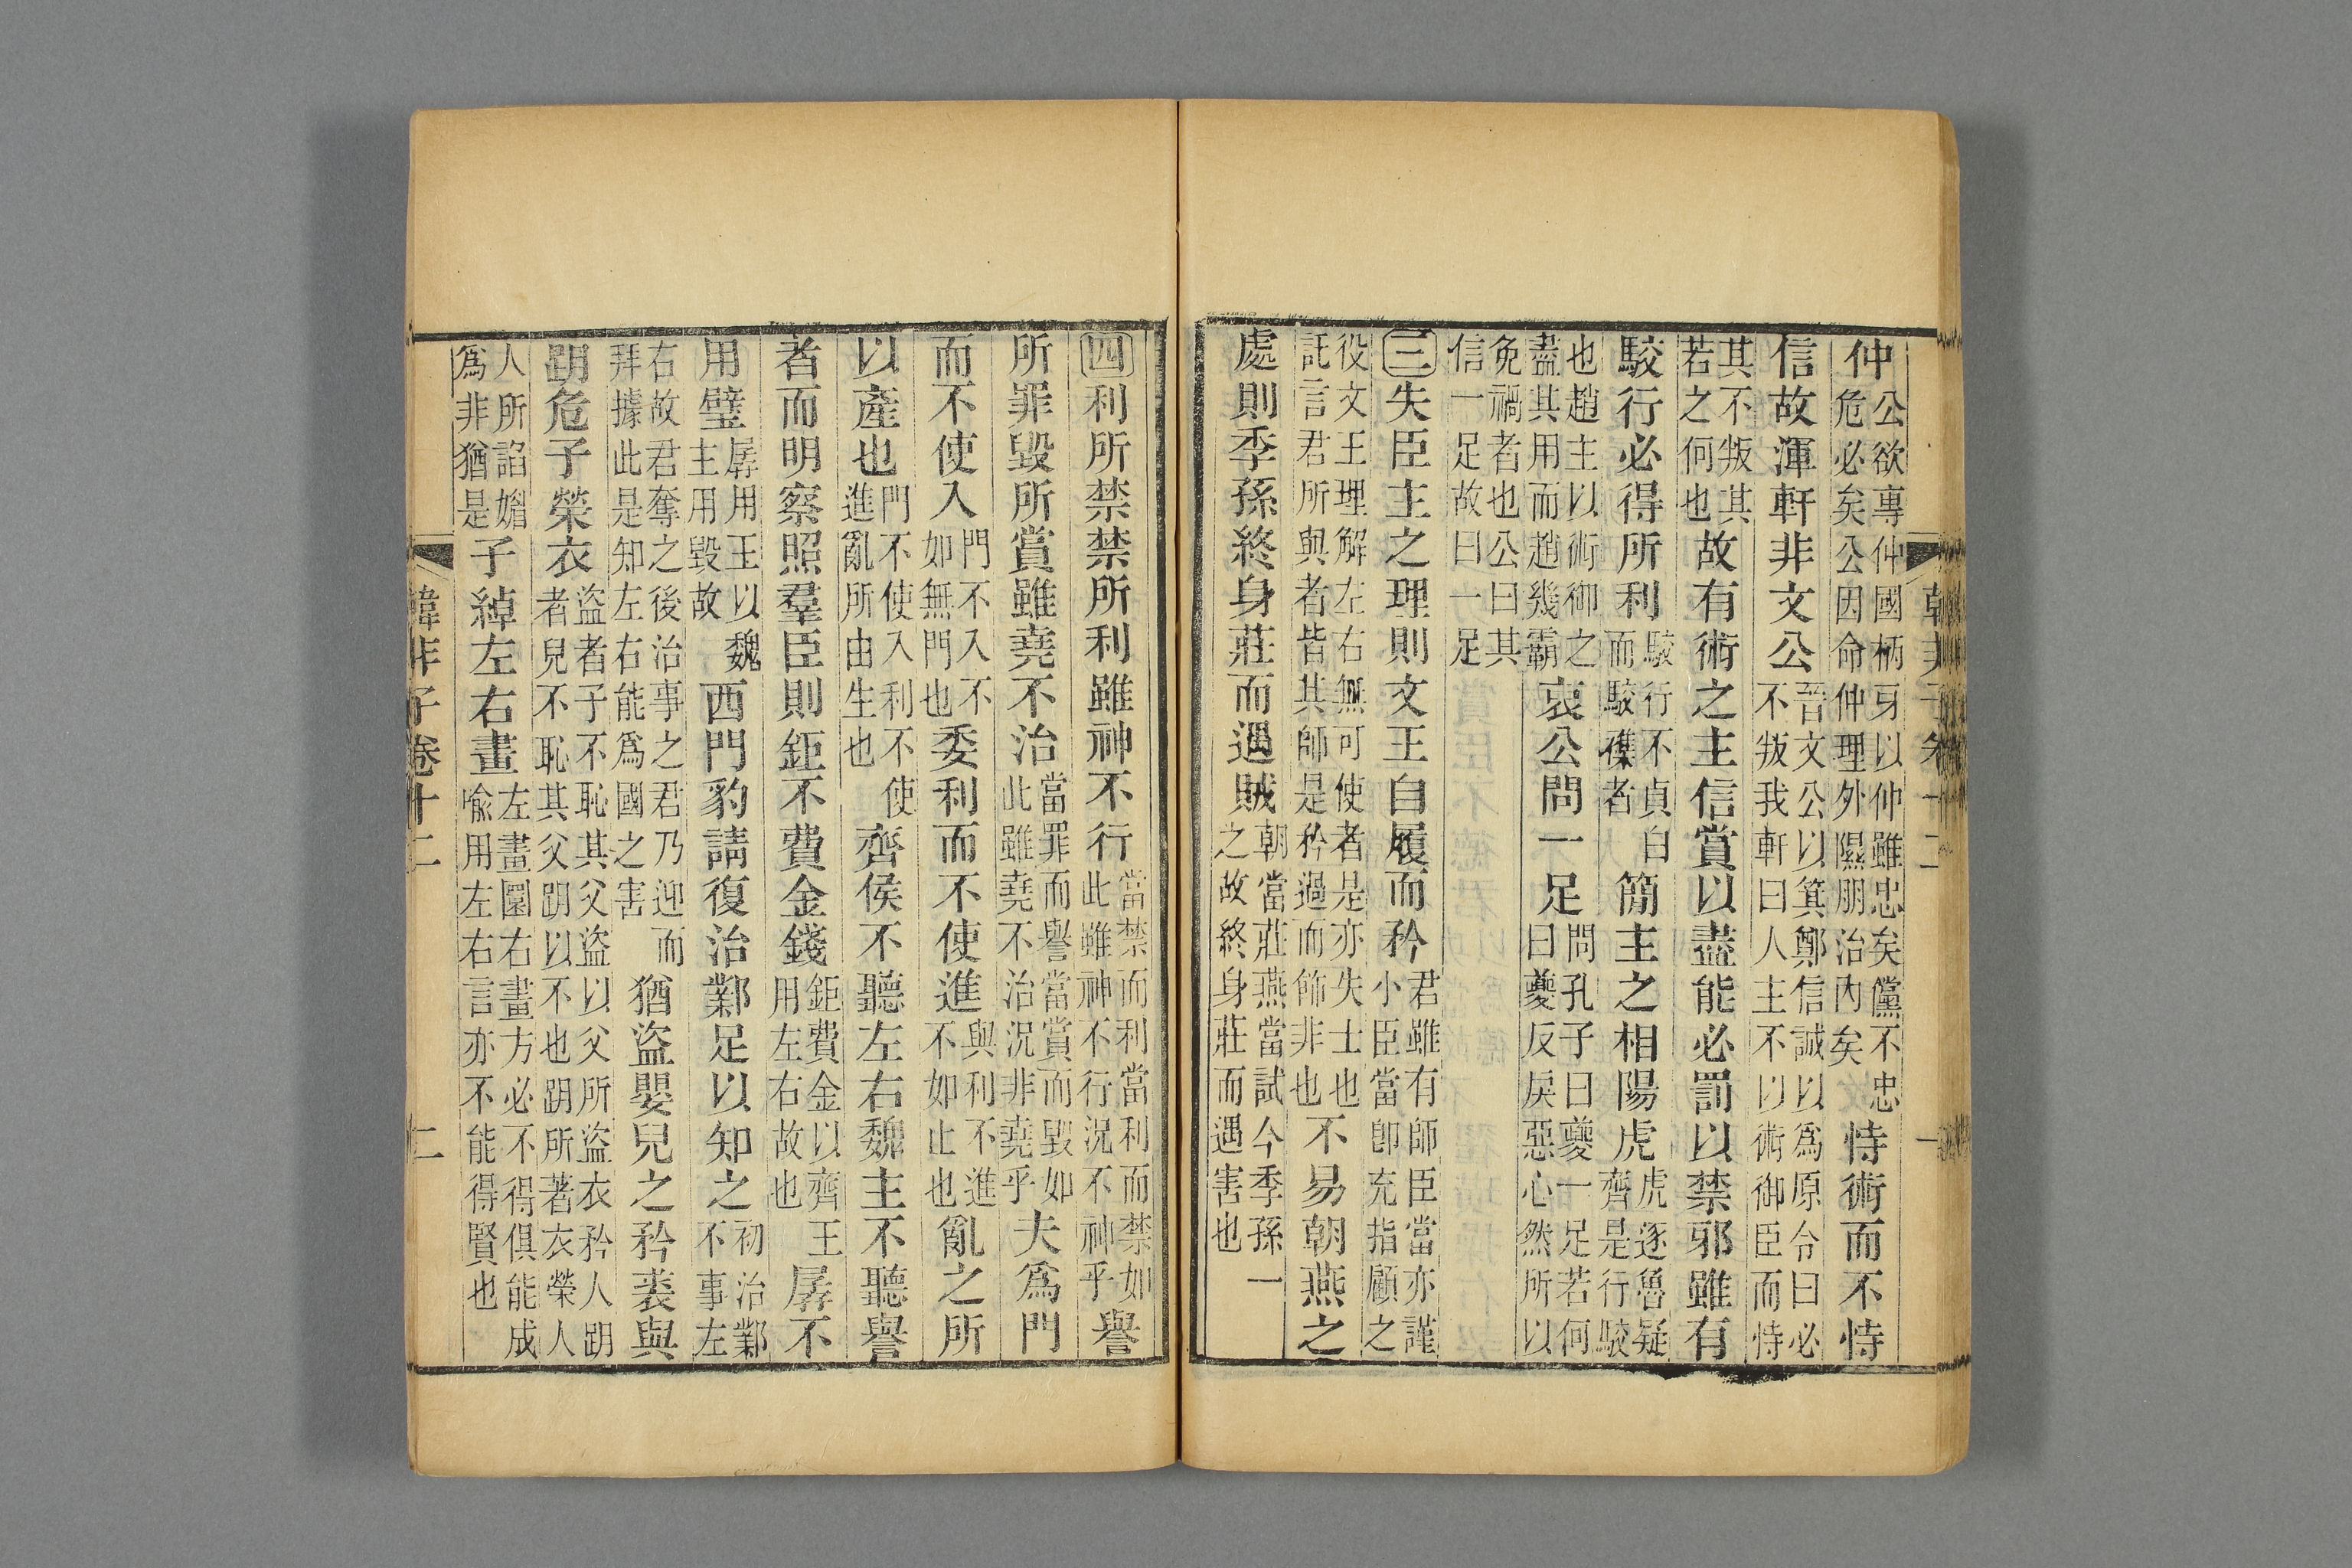 韓非子卷十二 一
仲公欲專仲國柄牙以仲雖忠矣儻不忠危必矣公因命仲理外隰朋治內矣恃術而不恃
信故渾軒非文公晉文公以箕鄭信誠以為原令曰必不叛我軒曰人主不以術御臣而恃
其不叛其若之何也故有術之主信賞以盡能必罰以禁邪雖有
駮行必得所利駮行不貞白而駮襍者簡主之相陽虎虎逐魯疑齊是行駮
也趙主以術御之盡其用而趙幾霸哀公問一足問孔子曰夔一足若何曰夔反戾惡心然所以
免禍者也公曰其信一足故曰一足
三失臣主之理則文王自履而矜君雖有師臣當亦謹小臣當卽充指顧之
役文王理解左右無可使者是亦失士也託言君所與者皆其師是矜過而飾非也不易朝燕之
處則季孫終身莊而遇賊朝當莊燕當試今季孫一之故終身莊而遇害也
四利所禁禁所利雖神不行當禁而利當利而禁如此雖神不行況不神乎譽
所罪毀所賞雖堯不治當罪而譽當賞而毀如此雖堯不治況非堯乎夫爲門
而不使入門不入不如無門也委利而不使進與利不進不如止也亂之所
以產也門不使入利不使進亂所由生也齊侯不聽左右魏主不聽譽
者而明察照羣臣則鉅不費金錢鉅費金以齊王用左右故也孱不
用璧孱用王以魏主用毀故西門豹請復治鄴足以知之初治鄴不事左
右故君奪之後治事之君乃迎而拜據此是知左右能爲國之害猶盜嬰兒之矜裘與
跀危子榮衣盜者子不恥其父盜以父所盜衣矜人跀者兒不恥其父跀以不也跀所著衣榮人
人所諂媚爲非猶是子綽左右畫左畫圓右畫方必不得俱能成喩用左右言亦不能得賢也
韓非子卷十二 二